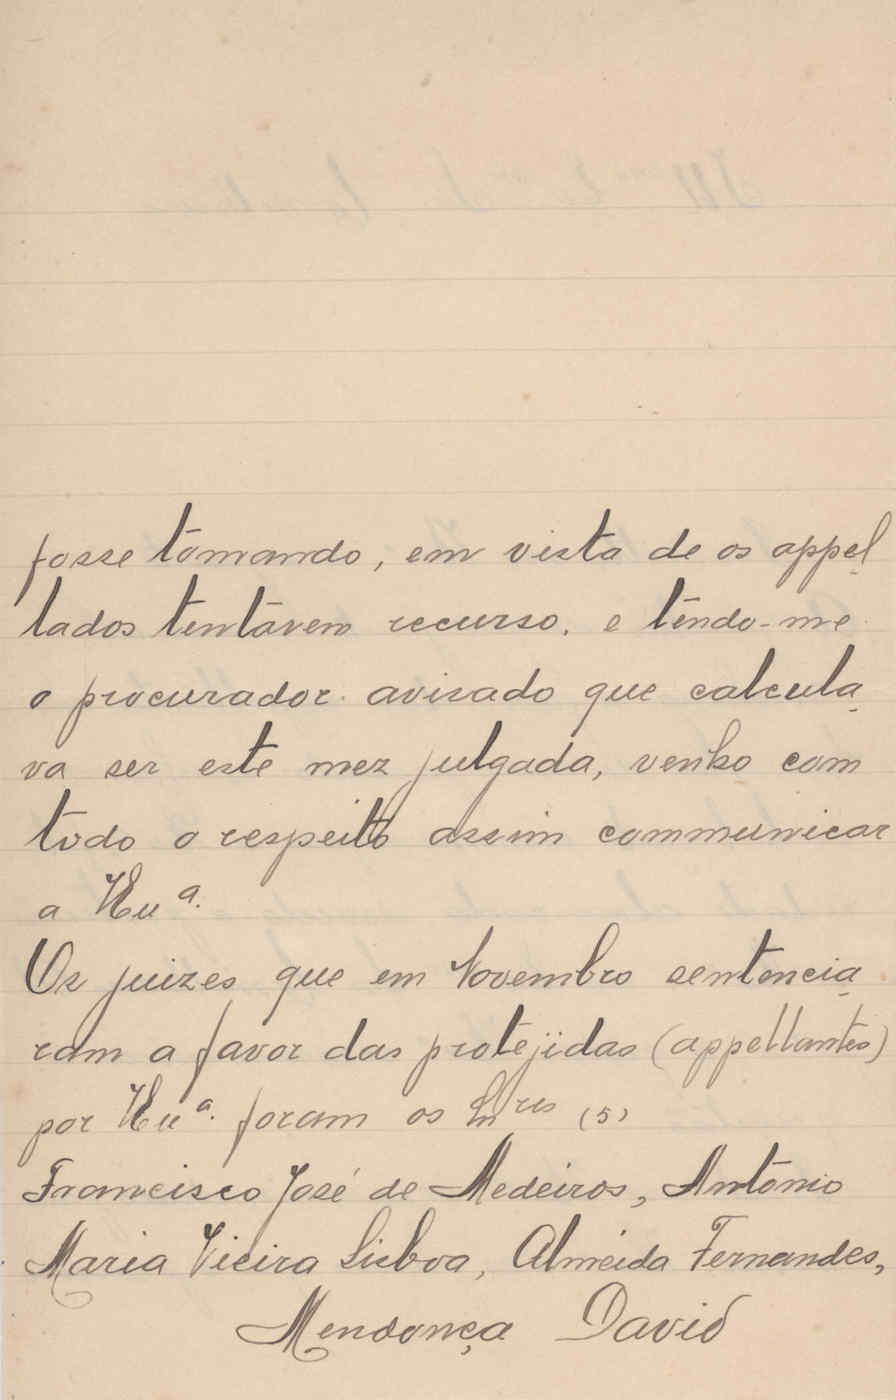 fosse tomando, em vista de os appel
lados tentavem recurso. e tendo-me
o procurador avisado que calcula
va ser este mez julgada, venho com
todo o respeito assim communicar
a V Exª.
Os juizes que em Novembro sentencia
ram a favor das protejidas (appellantes)
por V Exª. foram os Snres (5)
Francisco José de Medeiros, António
Maria Vieira Lisboa, Almeida Fernandes,
Mendonça David